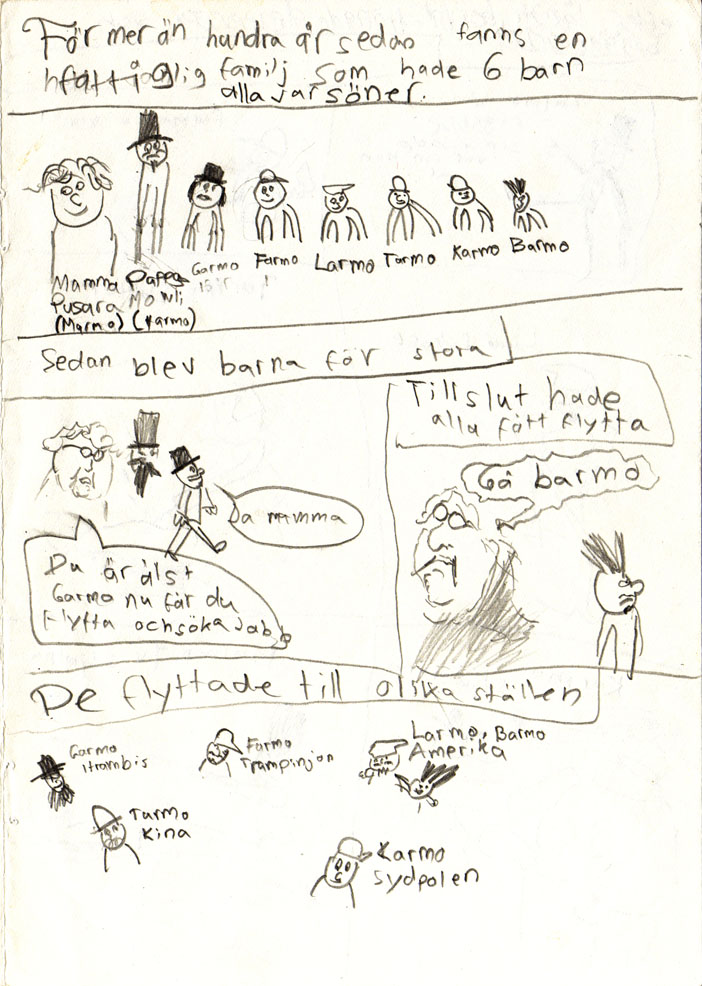 För mer än hundra år sedan fanns en
fattig familj som hade 6 barn
alla var söner.
Mamma
Pusara
(Marmo)
Pappa
Mowli
(Varmo)
Garmo
15 år
Farmo
Larmo
Tarmo
Karmo
Barmo
Sedan blev barna för stora
Du är älst
Garmo nu får du
flytta och söka jobb
Ja mamma
Tillslut hade
alla fått flytta
Gå barmo
De flyttade till olika ställen
Garmo
Farmo
Trampinjon
Larmo, Barmo
Amerika
Tarmo
Kina
Karmo
Sydpolen